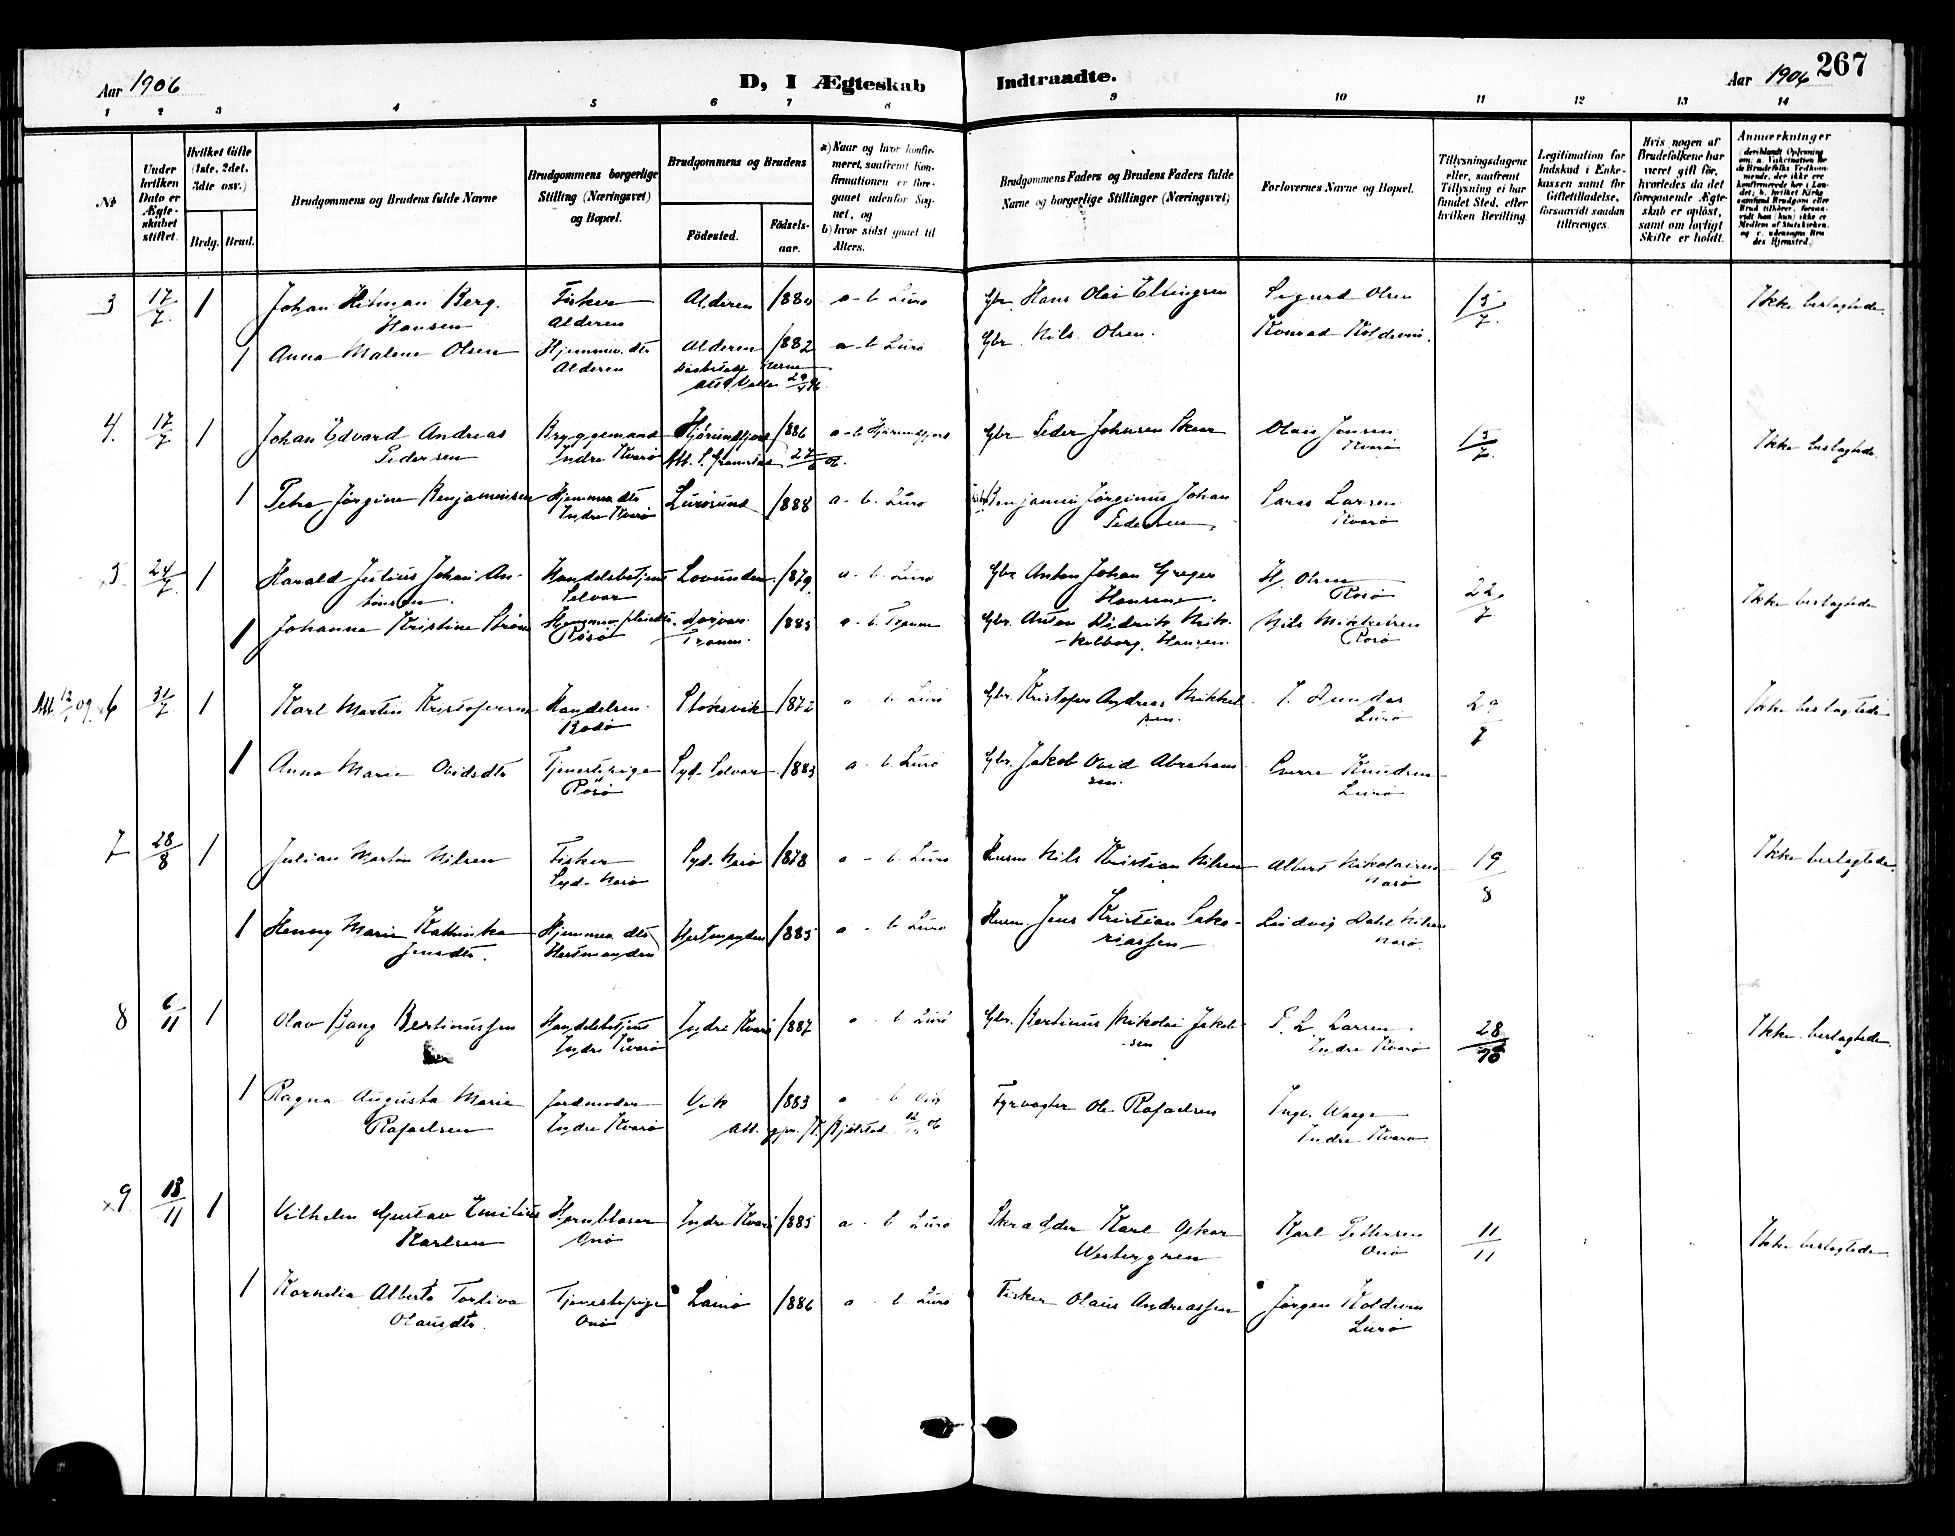 267
Aar 1906
D, I Ægteskab
Indtraadte.
Aar 1906
1 2 3 4 5 6 7 8 9 10 11 12 13 14
№
Under hvilken Dato er Ægteskabet stiftet.
Hvilket Gifte (1ste, 2det, 3die osv.)
Brdg. Brud.
Brudgommens og Brudens fulde Navne
Brudgommens borgerlige Stilling (Næringsvei) og Bopæl.
Brudgommens og Brudens
Fødested.
Fødselsaar.
a) Naar og hvor konfirmeret, saafremt Konfirmationen er foregaaet udenfor Sognet, og
b) hvor sidst gaaet til Alters.
Brudgommens Faders og Brudens Faders fulde Navne og borgerlige Stillinger (Næringsvei)
Forlovernes Navne og Bopæl.
Tillysningsdagene eller, saafremt Tillysning ei har fundet Sted, efter hvilken Bevilling.
Legitimation for Indskud i Enkekassen samt for Giftetilladelse, forsaavidt saadan tiltrænges.
Hvis nogen af Brudefolkene har været gift før, hvorledes da det foregaaende Ægteskab er opløst, samt om lovligt Skifte er holdt.
Anmærkninger
3 17/7 1 Johan Hilman Berg Fisker Alderen 1880 a - b Lurø Gbr. Hans Olai Ellingsen Sigurd Olsen 15/7 Ikke beslægtede.
Hansen Alderen
1 Anna Malene Olsen Hjemmev. dtr Alderen 1882 a - b Lurø Gbr Nils Olsen. Konrad Koldevin.
Alderen
4. 17/7 1 Johan Edvard Andreas Bryggemand Hjørundfjord 1886 a - b Hjørundfjord Gbr Peder Johnsen Skaar Olais Jensen 15/7 Ikke beslægtede.
Pedersen Indre Kvarø Kvarø
1 Petra Jørgine Benjaminsen Hjemmev. dtr Lurøsund 1888 a - b. Lurø Benjamin Jørginus Johan Lars Larsen
Indre Kvarø Pedersen Kvarø
5. 24/7 1 Harald Julius Johan An- Handelsbetjent Lovunden 1879 a - b. Lurø Gbr. Anton Johan Greger H. Olsen 22/7 Ikke beslægtede
tonsen. Selvær Hansen Rosø
1 Johanne Kristine Strøm 1885 a - b. Træna Gbr. Anton Didrik Mik- Nils Mikkelsen
Rosø Træna. kelborg Hansen. Rosø
Att. 12/1 09. x6 31/7 1 Karl Martin Kristofersen Handelsm. Stoksvik 1872 a - b. Lurø Gbr. Kristofer Andreas Mikkel- J. Dundas 29/7 Ikke beslægtede
Bodø sen. Lurø
1 Anna Marie Ovidsdtr Tjenestepige Syd. Selvær 1883 a - b. Lurø Gbr. Jakob Ovid Abraham- Sverre Knudsen
Rosø sen. Lurø
7 28/8 1 Julian Martin Nilsen Fisker Syd. Nesø 1878 a - b. Lurø Husm. Nils Kristian Nilsen Albert Nikolaisen 19/8 Ikke beslægtede.
Syd. Nesø Nesø
1 Henny Marie Kathinka Hjemmev. dtr Hestmanden 1885 a - b Lurø Husm. Jens Kristian Saka- Ludvig Dahl Nilsen
Jensdtr. Hestmanden riassen Nesø.
8 6/11 1 Olav Bang Bertinussen Handelsbetjent Indre Kvarø 1887 a - b. Lurø Gbr. Bertinus Nikolai Jakob- P. L. Larsen 28/10 Ikke beslægtede.
Indre Kvarø sen Indre Kvarø
1 Ragna Augusta Marie Jordmoder Vik 1883 a - b Vik Fyrvogter Ole Rafaelsen Inge. Waage
Rafaelsen Indre Kvarø Indre Kvarø
x9. 13/11 1 Vilhelm Gustav Emilius Hornblæser Indre Kvarø 1885 a - b Lurø Skradder Karl Oskar Karl Pettersen 11/11 Ikke beslægtede
Karlsen Onø Westergren Onø
1 Kornelia Alberta Torliva Tjenestepige 1886 a - b Lurø Fisker Olaus Andreassen Jørgen Koldevin
Olausdtr. Onø Lurø